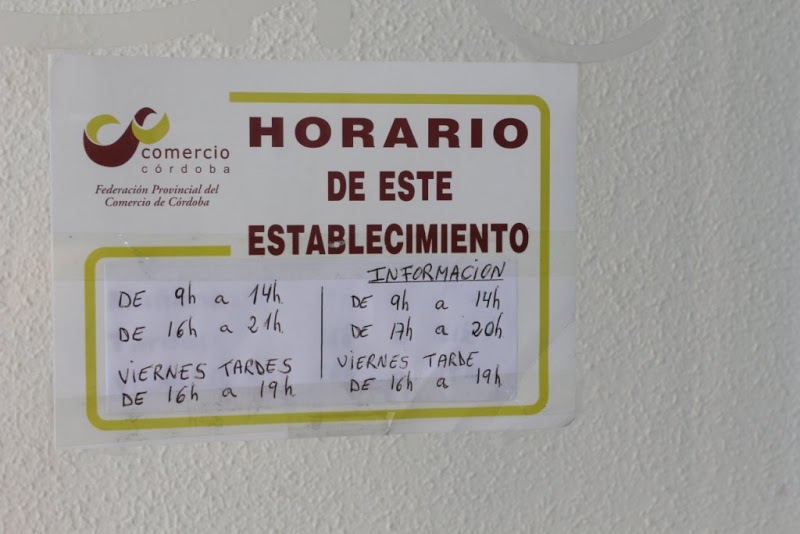 comercio
córdoba
Federación Provincial del
Comercio de Córdoba
HORARIO
DE ESTE
ESTABLECIMIENTO
DE 9h a 14h
DE 16h a 21h
VIERNES TARDES
DE 16h a 19h
INFORMACION
DE 9h a 14h
DE 17h a 20h
VIERNES TARDE
DE 16h a 19h